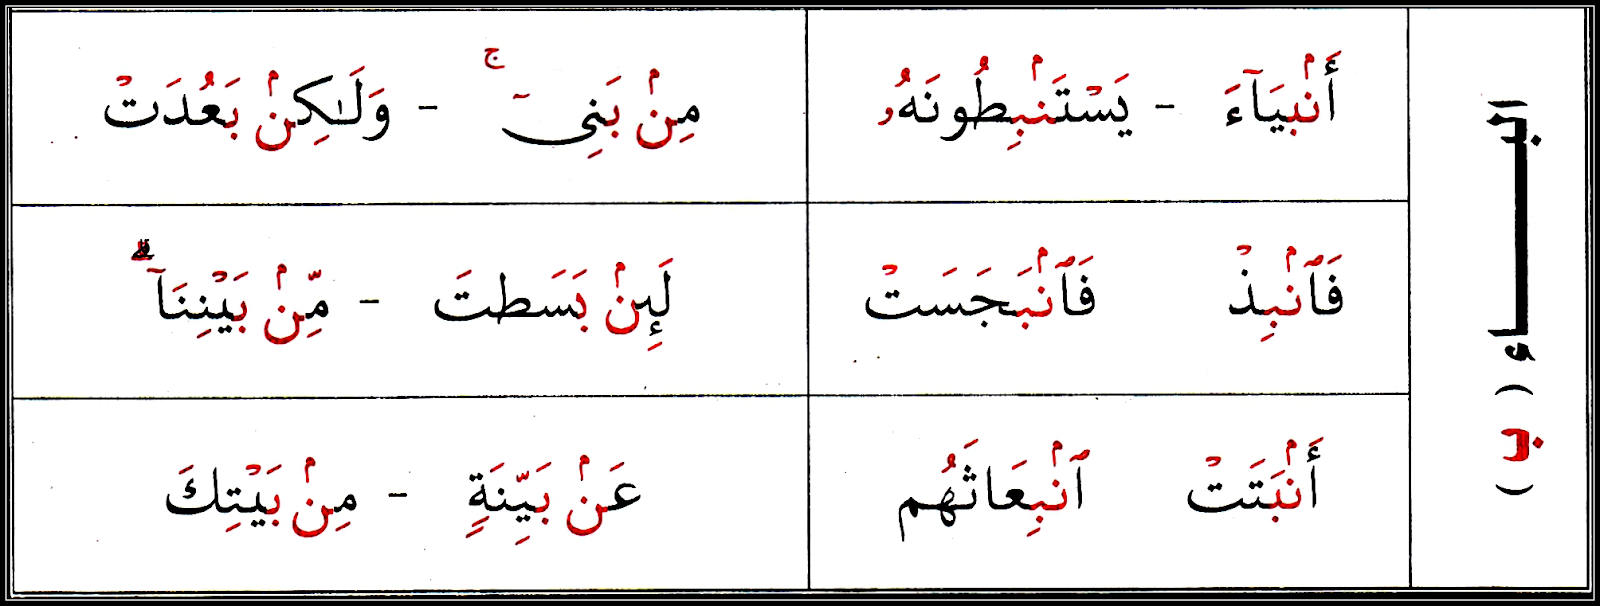 البـاء ( بـ )
أَنۢبِيَآءَ - يَسْتَنۢبِطُونَهُۥ
مِنۢ بَنِىٓ ۚ - وَلَٰكِنۢ بَعُدَتْ
فَٱنۢبِذْ فَٱنۢبَجَسَتْ
لَئِنۢ بَسَطتَ - مِّنۢ بَيْنِنَآ ۗ
أَنۢبَتَتْ ٱنۢبِعَاثَهُم
عَنۢ بَيِّنَةٍ - مِنۢ بَيْتِكَ